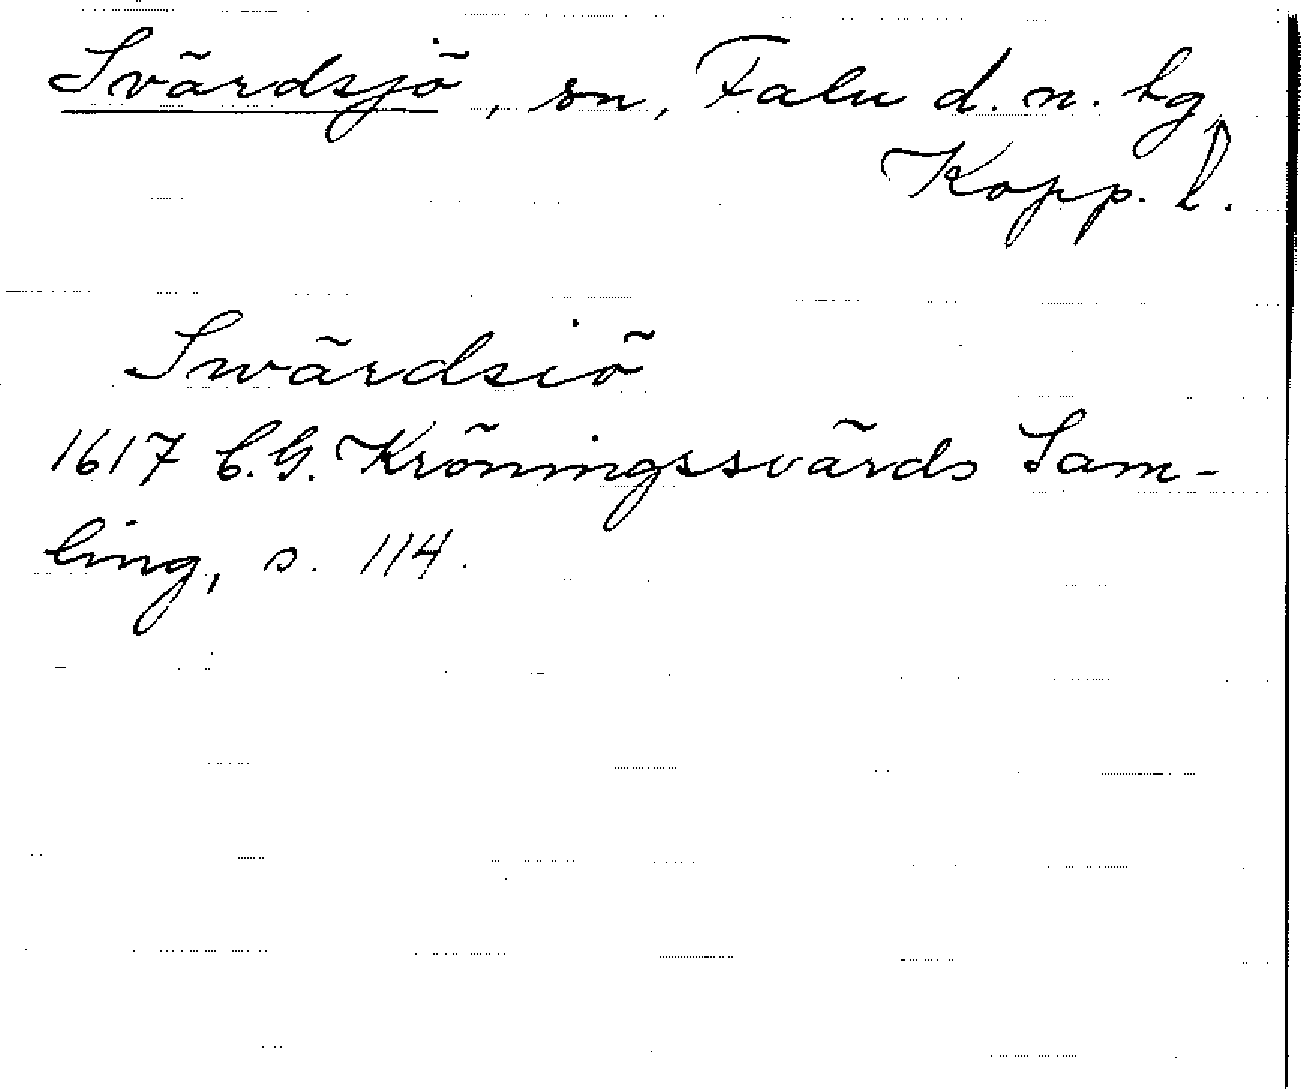 Svärdsjö, sn, Falu d. n. tg
Kopp. l.
Swärdsiö
1617 C.G. Kröningssvärds Sam-
ling, s. 114.